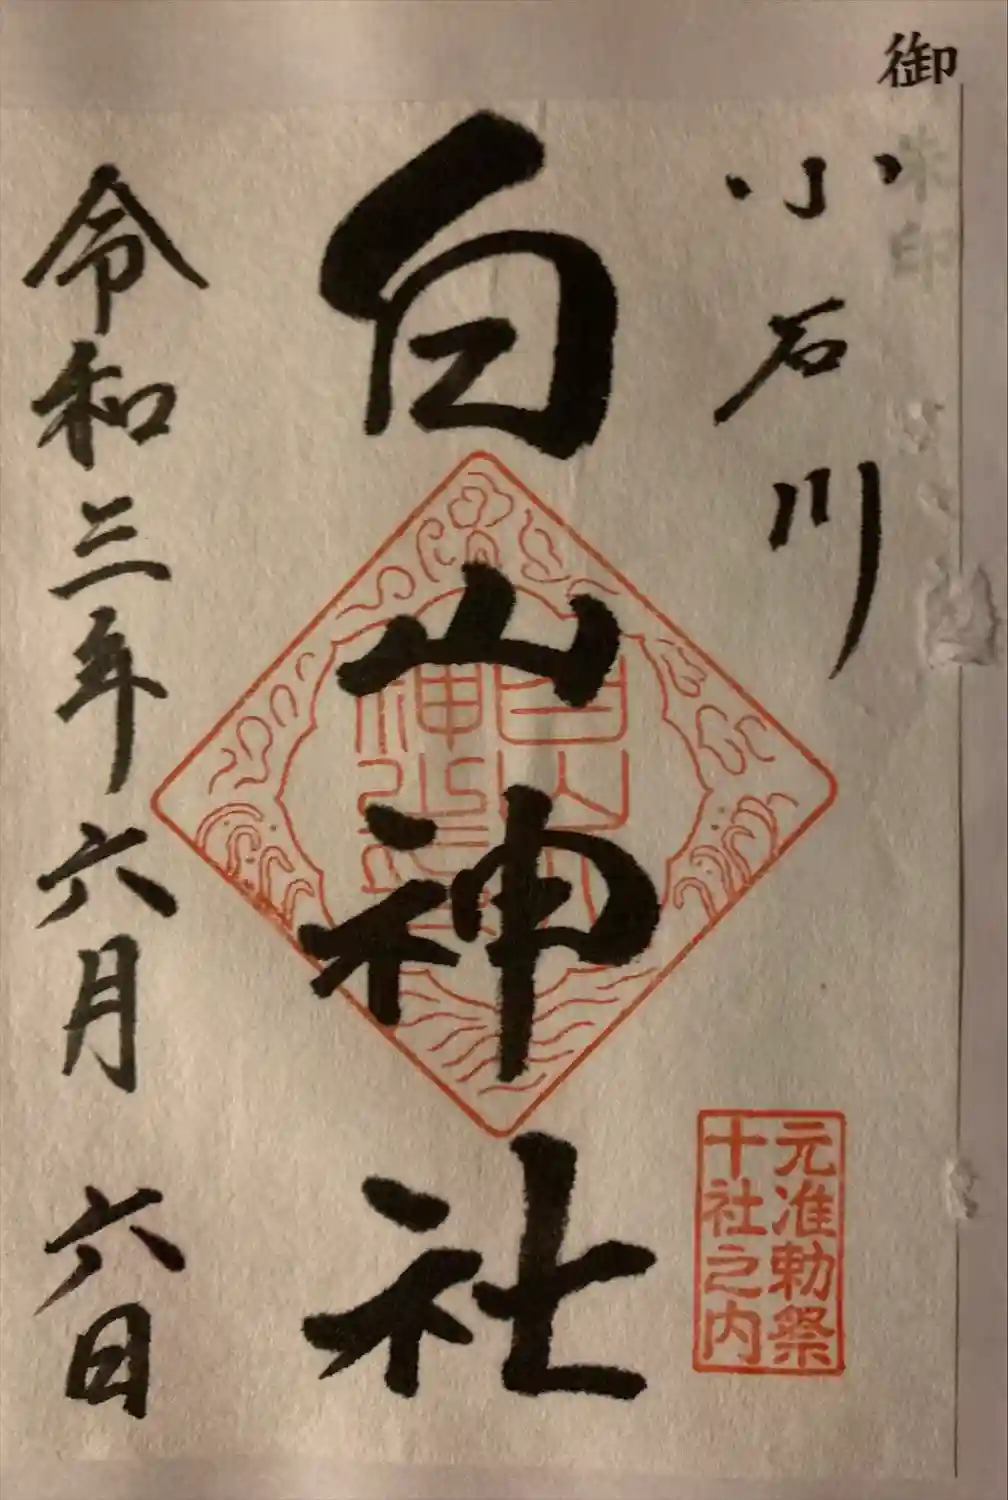 御朱印
小石川
白山神社
元准勅祭
十社之内
令和三年六月六日